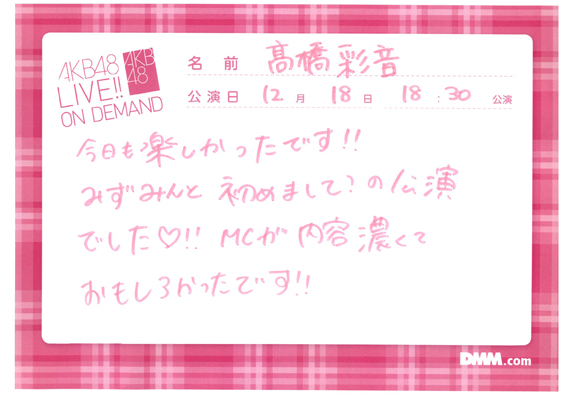 AKB48
LIVE!!
ON DEMAND
AKB
48
名前 髙橋彩音
公演日 12月18日 18:30公演
今日も楽しかったです!!
みずみんと初めまして?の公演
でした♡!! MCが内容濃くて
おもしろかったです!!
DMM.com